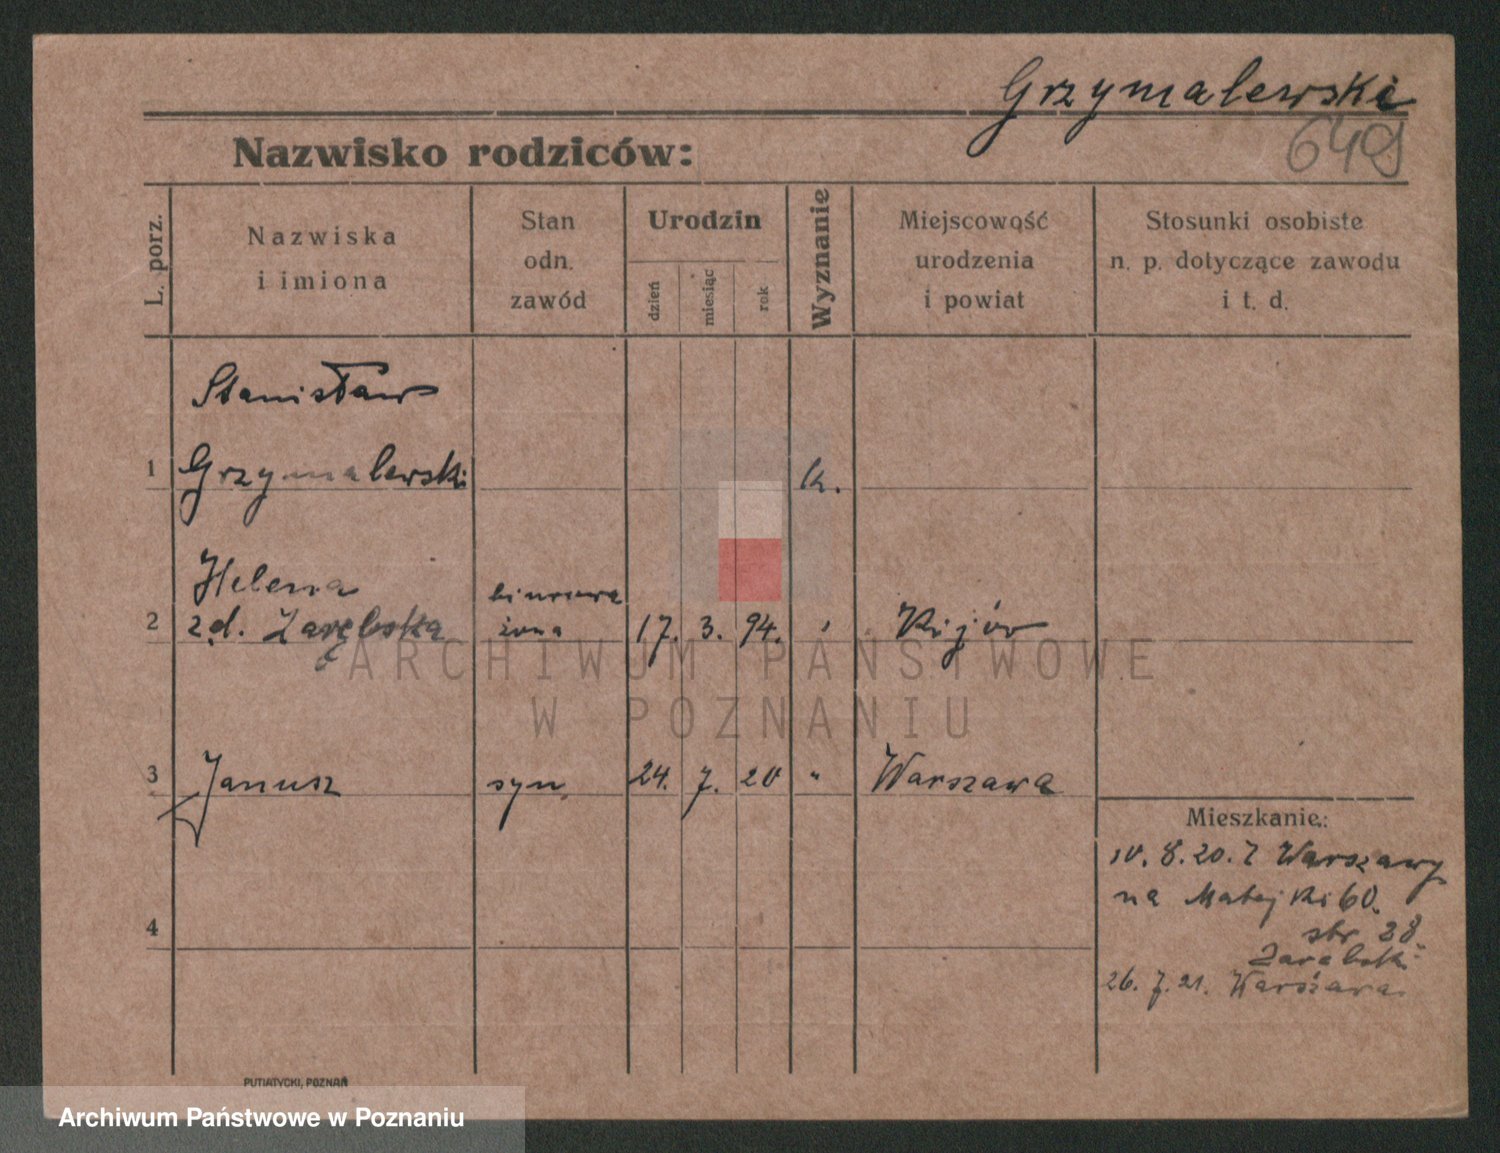 Grzymalewski
649
Nazwisko rodziców:
L. porz.
Nazwiska
i imiona
Stan
odn.
zawód
Urodzin
dzień
miesiąc
rok
Wyznanie
Miejscowość
urodzenia
i powiat
Stosunki osobiste
n. p. dotyczące zawodu
i t. d.
Stanisław
1 Grzymalewski k.
Helena biurowa
2 z d. Zarębska żona 17. 3. 94. " Kijów
3 Janusz syn 24. 7. 20 " Warszawa
Mieszkanie:
10. 8. 20. Z Warszawy
na Matejki 60.
str. 28.
Zarębski
4
26. 7. 21. Warszawa.
PUTIATYCKI, POZNAŃ
ARCHIWUM PAŃSTWOWE
W POZNANIU
Archiwum Państwowe w Poznaniu